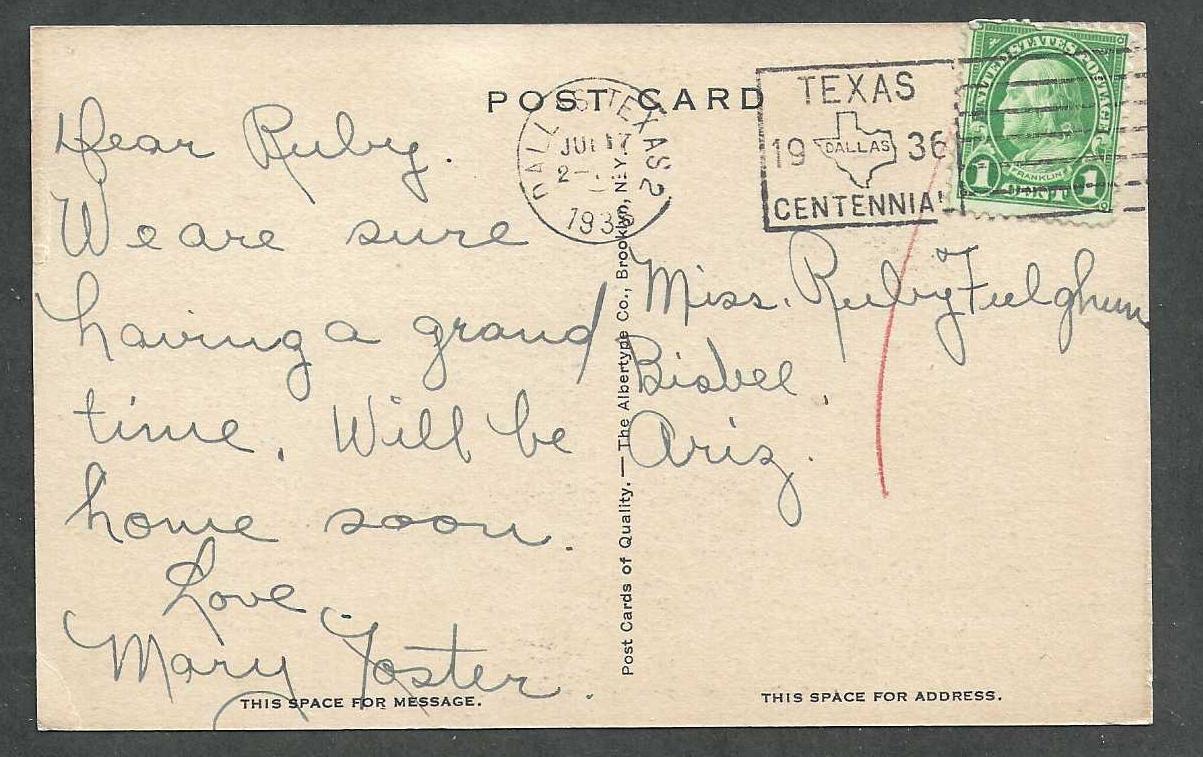 POST CARD
DALL S TEXAS 2
JUL 17
2-
193
TEXAS
19 DALLAS 36
CENTENNIAL
UNITED STATES POSTAGE
FRANKLIN
1 CENT 1
Dear Ruby.
We are sure
having a grand
time. Will be
home soon.
Love.
Mary Foster.
Miss. Ruby Fulghum
Bisbee,
Ariz.
Post Cards of Quality. — The Albertype Co., Brooklyn, N.Y.
THIS SPACE FOR MESSAGE.
THIS SPACE FOR ADDRESS.